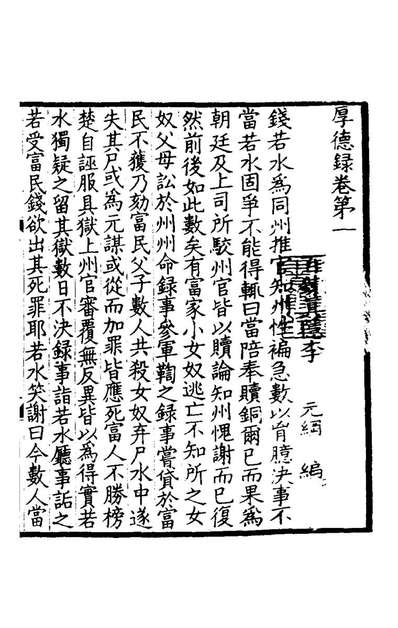 厚德録卷第一
李 元綱 編
錢若水爲同州推官知州性褊急數以胷臆決事不
當若水固爭不能得輒曰當陪奉贖銅爾已而果爲
朝廷及上司所駮州官皆以贖論知州愧謝而已復
然前後如此數矣有富家小女奴逃亡不知所之女
奴父母訟於州州命録事參軍鞫之録事嘗貸於富
民不獲乃劾富民父子數人共殺女奴弃尸水中遂
失其尸或爲元謀或從而加罪皆應死富人不勝榜
楚自誣服具獄上州官審覆無反異皆以為得實若
水獨疑之留其獄數日不決録事詣若水聽事詬之
若受富民錢欲出其死罪耶若水笑謝曰今數人當